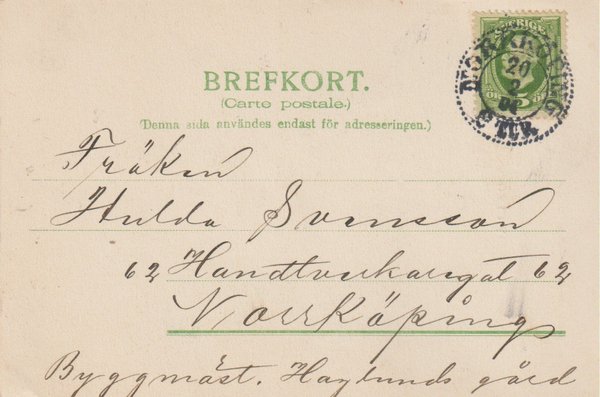 SVERIGE
20
2
04
5
TUR.
BREFKORT.
(Carte postale.)
(Denna sida användes endast för adresseringen.)
Fröken
Hulda Svensson
62 Handtverkaregat 62
Norrköping
Byggmäst. Haglunds gård